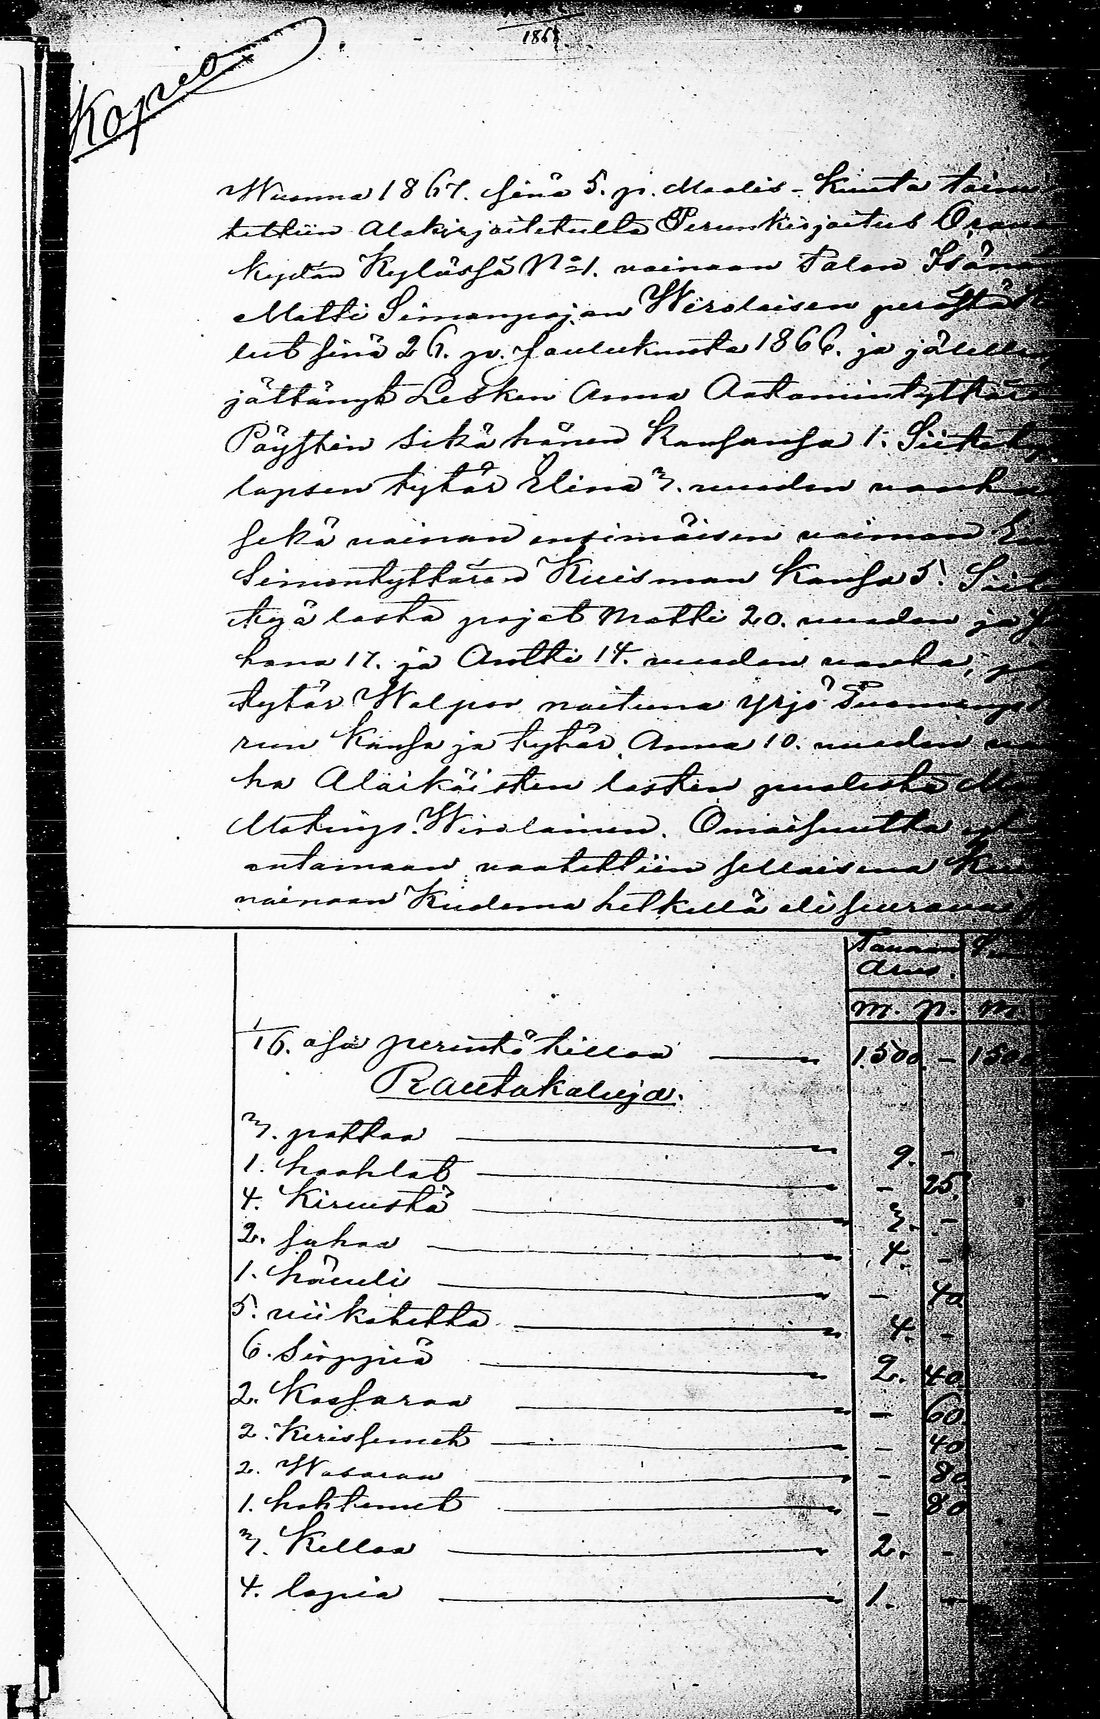 1868
Kopio
Wuonna 1867. sinä 5. p. Maalis-kuuta toimi
tettiin alakirjoitetulta Perunkirjoitus Orava
kydän Kylässä No 1. vainaan Talon Isän
Matti Simonpojan Wirolaisen perässtä
lut sinä 26. p. Joulukuuta 1866. ja jälellen
jättänyt Lesken Anna Antamintyttären
Pöyhiin sikä hänen kansansa 1. Siitet
lapsen tytär Elina 3. vuoden vanha
sekä vainan ensimäisen vaimon
Simontyttären Kuisman Kansa 5. Siit
tyä lasta pojat Matti 20. vuoden ja J
hana 17. ja Antti 14. vuoden vanha,
tytär Walpor naituna Yrjö Tuomanpoi
run Kansa ja tytär Anna 10. vuoden van
ha Alaikäisten lasten puolesta
Matinp. Wirolainen. Omaisuutta
antamaan vaatettiin sellaisena kui
vainaan Kuolema hetkellä oli seuraava
Tavaran
Arvo.
m. p. m
1/16. osa perintötillaa 1500 - 1500
Rautakaluja.
3. pattaa 9. -
1. haahlat - 25.
4. Kirvestä 3. -
2. sahaa 4. -
1. häuli - 40
5. viikatetta 4. -
6. Sirppiä 2. 40
2. Kassaraa - 60
2. Kerissemet - 40
2. Wasaraa - 80
1. hohtimet - 80
3. Kelloa 2. -
4. lapia 1. -